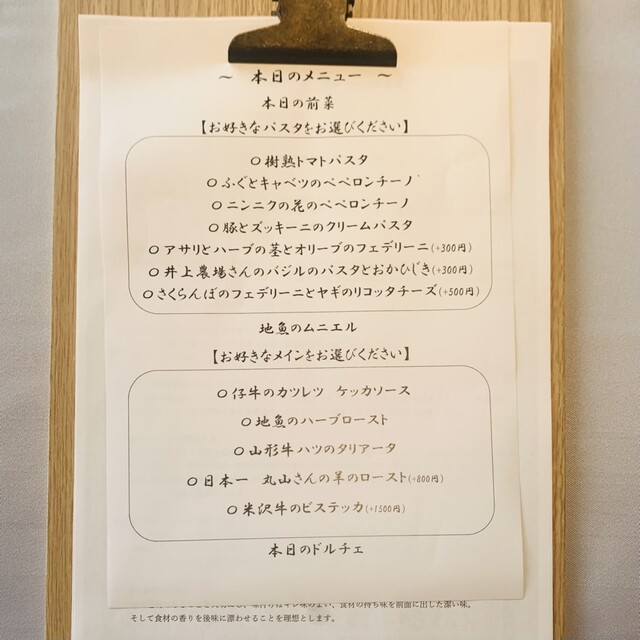 ～ 本日のメニュー ～
本日の前菜
【お好きなパスタをお選びください】
○樹熟トマトパスタ
○ふぐとキャベツのペペロンチーノ
○ニンニクの花のペペロンチーノ
○豚とズッキーニのクリームパスタ
○アサリとハーブの茎とオリーブのフェデリーニ(+300円)
○井上農場さんのバジルのパスタとおかひじき(+300円)
○さくらんぼのフェデリーニとヤギのリコッタチーズ(+500円)
地魚のムニエル
【お好きなメインをお選びください】
○仔牛のカツレツ ケッカソース
○地魚のハーブロースト
○山形牛ハツのタリアータ
○日本一 丸山さんの羊のロースト(+800円)
○米沢牛のビステッカ(+1500円)
本日のドルチェ
食材の持ち味を前面に出した潔い味。
そして食材の香りを後味に漂わせることを理想とします。